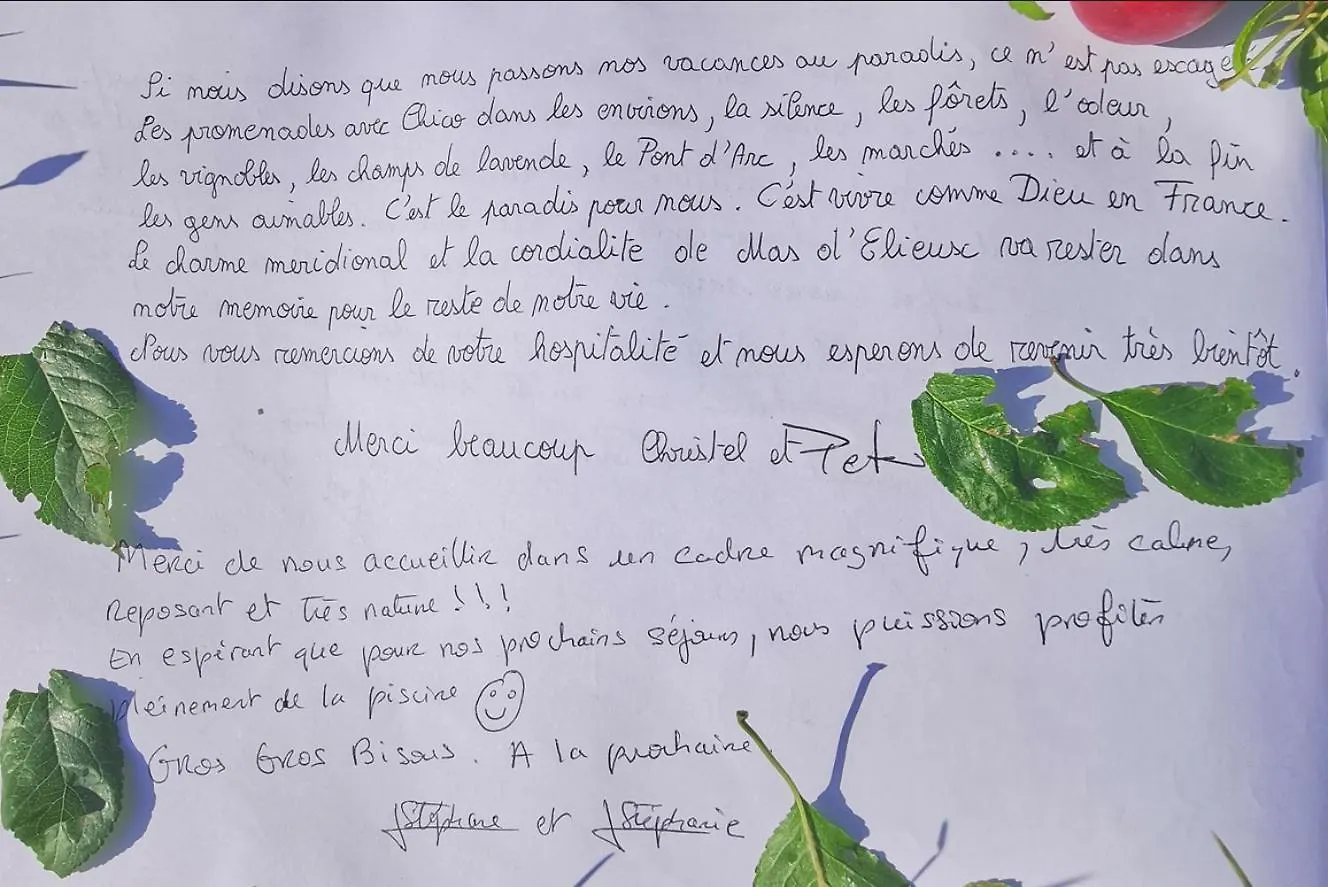 Si nous disons que nous passons nos vacances au paradis, ce n'est pas escage
Les promenades avec Chico dans les environs, la silence, les fôrets, l'odeur,
les vignobles, les champs de lavende, le Pont d'Arc, les marchés .... et à la fin
les gens aimables. C'est le paradis pour nous. C'est vivre comme Dieu en France.
Le charme meridional et la cordialite de Mas d'Elieux va rester dans
notre memoire pour le reste de notre vie.
Nous vous remercions de votre hospitalité et nous esperons de revenir très bientôt.
Merci beaucoup Christel et Pet
Merci de nous accueillir dans un cadre magnifique, très calme,
reposant et très nature !!!
En espérant que pour nos prochains séjours, nous puissions profiter
pleinement de la piscine
Gros Gros Bisous. A la prochaine
Stéphane et Stéphanie